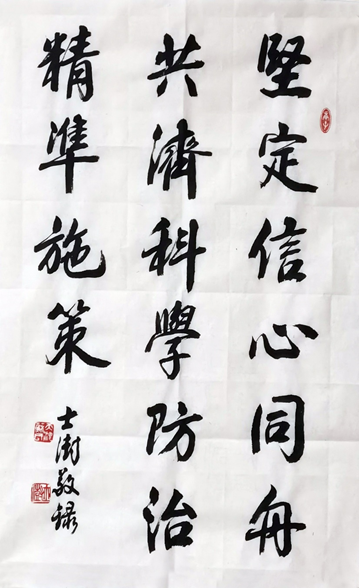 堅定信心同舟
共濟科學防治
精準施策
士澍敬录